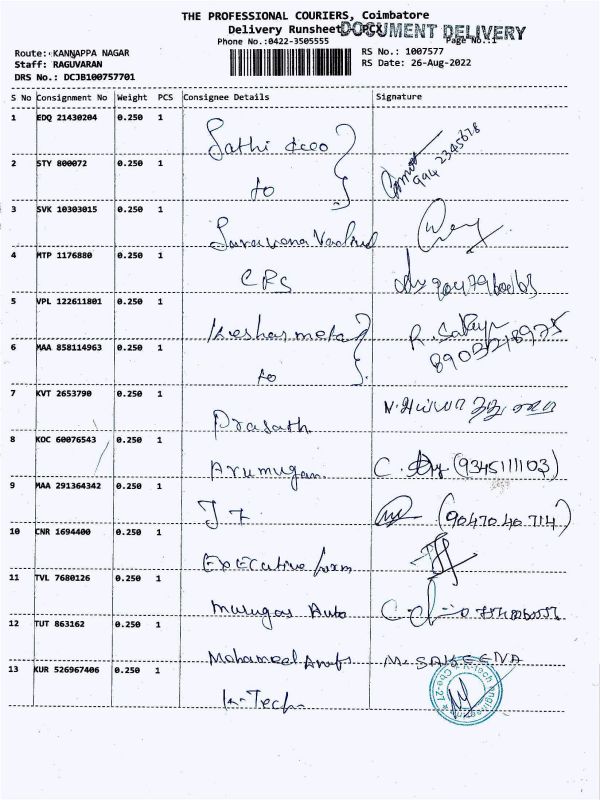 THE PROFESSIONAL COURIERS, Coimbatore
Delivery Runsheet - PCX
DOCUMENT DELIVERY
Phone No.:0422-3505555 Page No.:1
Route: KANNAPPA NAGAR RS No.: 1007577
Staff: RAGUVARAN RS Date: 26-Aug-2022
DRS No.: DCJB100757701
S No Consignment No Weight PCS Consignee Details Signature
1 EDQ 21430204 0.250 1
Sathi
994 2345678
2 STY 800072 0.250 1
to
3 SVK 10303015 0.250 1
Saravana
4 MTP 1176880 0.250 1
CPS
5 VPL 122611801 0.250 1
Keshar meta
6 MAA 858114963 0.250 1
to
7 KVT 2653790 0.250 1
Prasath
8 KOC 60076543 0.250 1
Arumugam C. (9345111103)
9 MAA 291364342 0.250 1
J 7 (90470 40 714)
10 CNR 1694400 0.250 1
Executive
11 TVL 7680126 0.250 1
Murugas Auto
12 TUT 863162 0.250 1
Mohameed M. SAKEENA
13 KUR 526967406 0.250 1
K-Tech
K-Tech Cbe-27